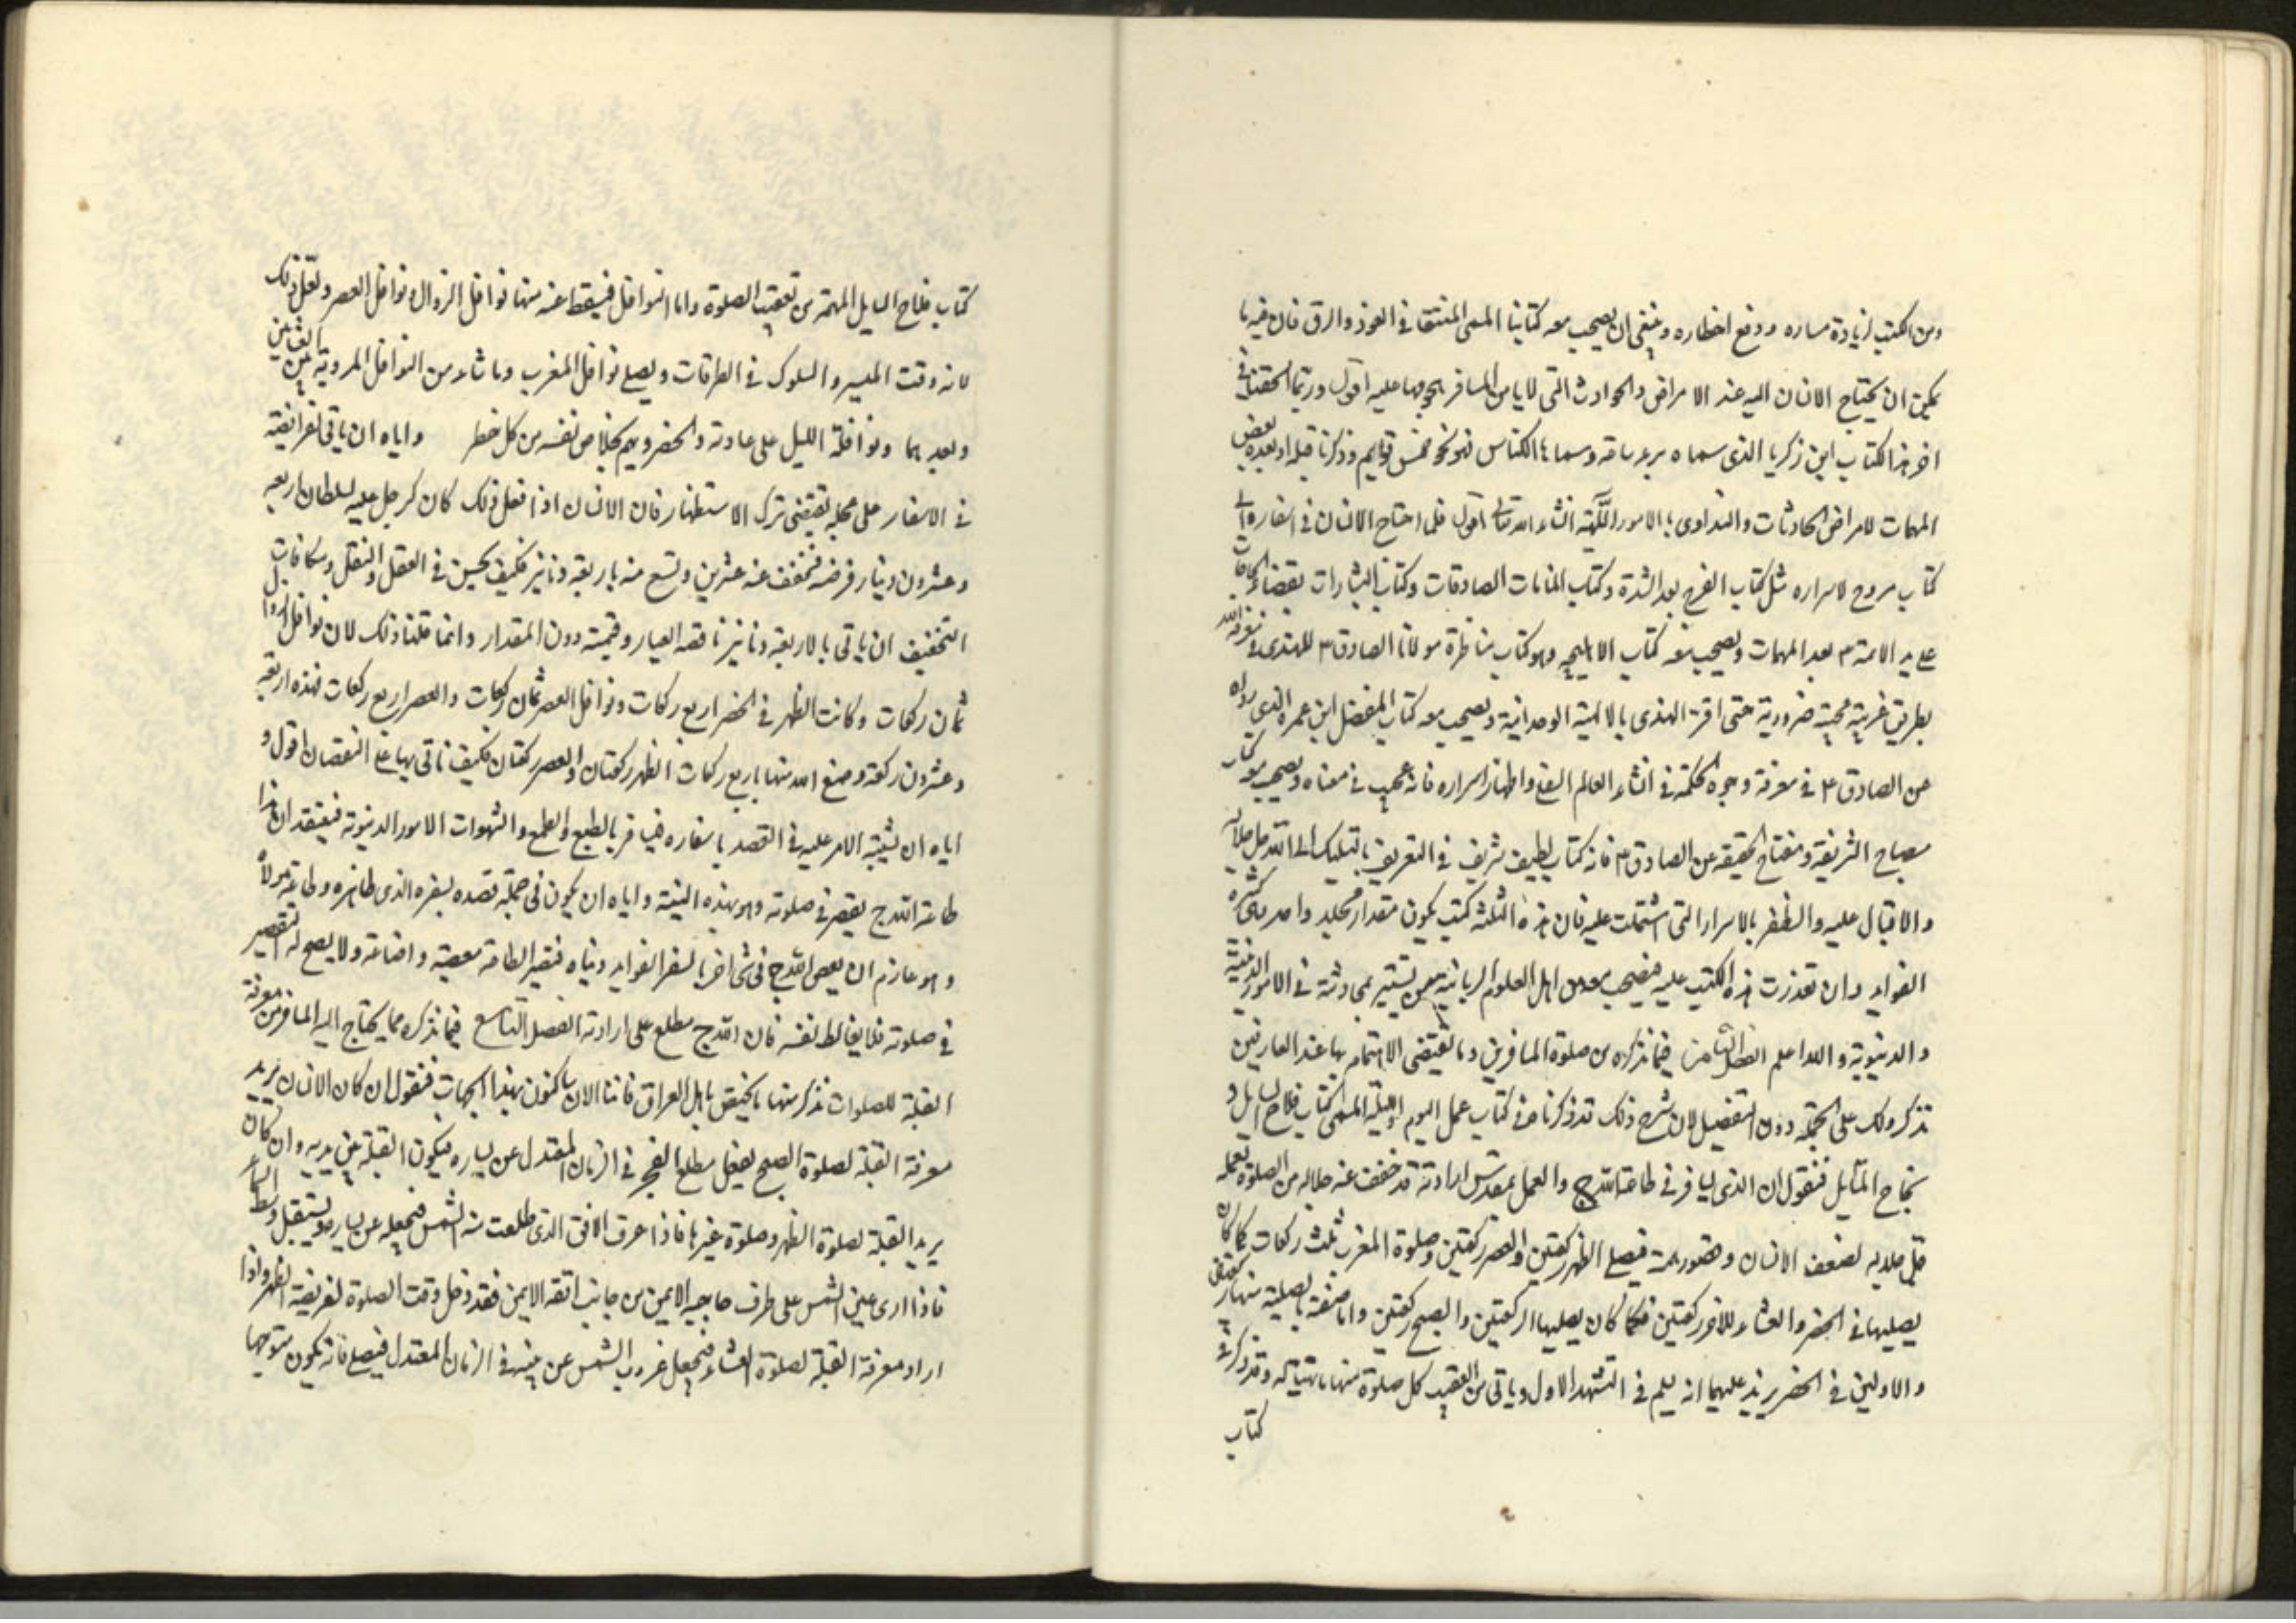 ومن الكتب لزيادة مساره ودفع اخطاره وينبغي ان يصحب معه كتابنا المسمى المنتقا في العوذ والرقى فان فيه ما
يمكن ان يحتاج الانسان اليه عند الامراض والحوادث التي لا يامن المسافر هجومها عليه اقول وربما الحقنا في
اخر هذا الكتاب ابن زكريا الذي سماه برء ساعة وسما الكناس فهو نحو خمس قوايم وذكرنا قبله او بعده بعض
المهمات لامراض الحادثات والتداوي بالامور اللّهية انشاء الله تعالى اقول فلما احتاج الانسان في اسفاره الى
كتاب مروح لاسراره مثل كتاب الفرج بعد الشدة وكتاب المنامات الصادقات وكتاب البشارات بقضاء الحاجات
على يد الائمة ع بعد المهمات ويصحب معه كتاب الاهليجة وهو كتاب مناظرة مولانا الصادق ع للهندي في معرفة الله
بطريق غريبة عجيبة ضرورية حتى اقر الهندي بالالهية الوحدانية ويصحب معه كتاب المفضل ابن عمر الذي رواه
عن الصادق ع في معرفة وجوه الحكمة في انشاء العالم السفلي واظهار اسراره فانه عجيب في معناه ويصحب معه كتاب
مصباح الشريعة ومفتاح الحقيقة عن الصادق ع فانه كتاب لطيف شريف في التعريف بالتسليك الى الله جل جلاله
والاقبال عليه والظفر بالاسرار التي اشتملت عليه فان هذه الثلثة كتب يكون مقدار مجلد واحد وهي كثيرة
الفوايد وان تعذرت هذه الكتب عليه فيصحب معه من اهل العلوم الربانية من يستنير بمحادثته في الامور الدينية
والدنيوية والله اعلم الفصل الثامن فيما نذكره من صلوة المسافرين وما يقتضي الاهتمام بها عند العارفين
نذكر ذلك على الجملة دون التفصيل لان شرح ذلك قد ذكرناه في كتاب عمل اليوم والليلة المسمى كتاب فلاح السايل و
نجاح المسايل فنقول ان الذي يسافر في طاعة الله ج والعمل بمقدس ارادته قد خفف عنه جلاله من الصلوة بعلمه
قبل جلاله لضعف الانسان وقصور همته فيصلى الظهر ركعتين والعصر ركعتين وصلوة المغرب ثلث ركعات كما كان
يصليها في الحضر والعشاء للاخر ركعتين فكما كان يصليها الركعتين والصبح ركعتين واما صفة ما يصليه منها ركعتان
والاولين في الحضر يزيد عليهما انه يسلم في التشهد الاول وياتي من تعقيب كل صلوة منها ما تهيأ له وقد ذكرنا في
كتاب
كتاب فلاح السايل المهمة من تعقيب الصلوة واما النوافل فيسقط عنه منها نوافل الزوال ونوافل العصر ولعل ذلك
لانه وقت المسير والسلوك في الطرقات ويصلي نوافل المغرب وما شاء من النوافل المروية بين العشائين
وبعدهما ونوافلة الليل على عادته والحضر ويهم بخلاص نفسه من كل خطر واياه ان ياتي بفرائضه
في الاسفار على عجلة تقتضي ترك الاستظهار فان الانسان اذا فعل ذلك كان كرجل عليه لسلطان اربعة
وعشرون دينار فرضه فخفف عنه عشرين وقنع منه باربعة دنانير فكيف يحسن في العقل والنقل ومكافات
التخفيف ان ياتي بالاربعة دنانير ناقصه العيار وقيمته دون المقدار وانما قلنا ذلك لان نوافل الزوال
ثمان ركعات وكانت الظهر في الحضر اربع ركعات ونوافل العصر ثمان ركعات والعصر اربع ركعات فهذه اربعة
وعشرون ركعة وصنع الله منها باربع ركعات الظهر ركعتان والعصر ركعتان فكيف تاتي بها على النقصان اقول و
اياه ان يشتبه الامر عليه في القصد باسفاره فيسافر بالطبع والطمع والشهوات الامور الدنيوية فيعتقد ان هذا
طاعة الله ج يقصر في صلوته وهو بهذه النية واياه ان يكون في جملة قصده بسفره الذي ظاهره وطاعة مولاه
وهو عازم ان يعصي الله ج في شي اخر بالسفر لفوايد دنياه فتصير الطاعة معصية واضاعة ولا يصح له التقصير
في صلوته فلا يغالط نفسه فان الله ج مطلع على ارادته الفصل التاسع فيما نذكره مما يحتاج اليه المسافر من معرفة
القبلة للصلوات نذكر منها ما يختص باهل العراق فاننا الان ساكنون بهذا الجهات فنقول ان كان الانسان يريد
معرفة القبلة لصلوة الصبح يجعل مطلع الفجر في الزمان المعتدل عن يساره فيكون القبلة بين يديه وان كان
يريد القبلة لصلوة الظهر وصلوة غيرها فاذا عرف الافق الذي طلعت منه الشمس فيجعله عن يساره ويستقبل وسط السماء
فاذا ارى عين الشمس على طرف حاجبه الايمن من جانب انفه الايمن فقد دخل وقت الصلوة لفريضة الظهر واذا
اراد معرفة القبلة لصلوة العشاء فيجعل غروب الشمس عن يمينه في الزمان المعتدل فيصلي فانه يكون متوجها